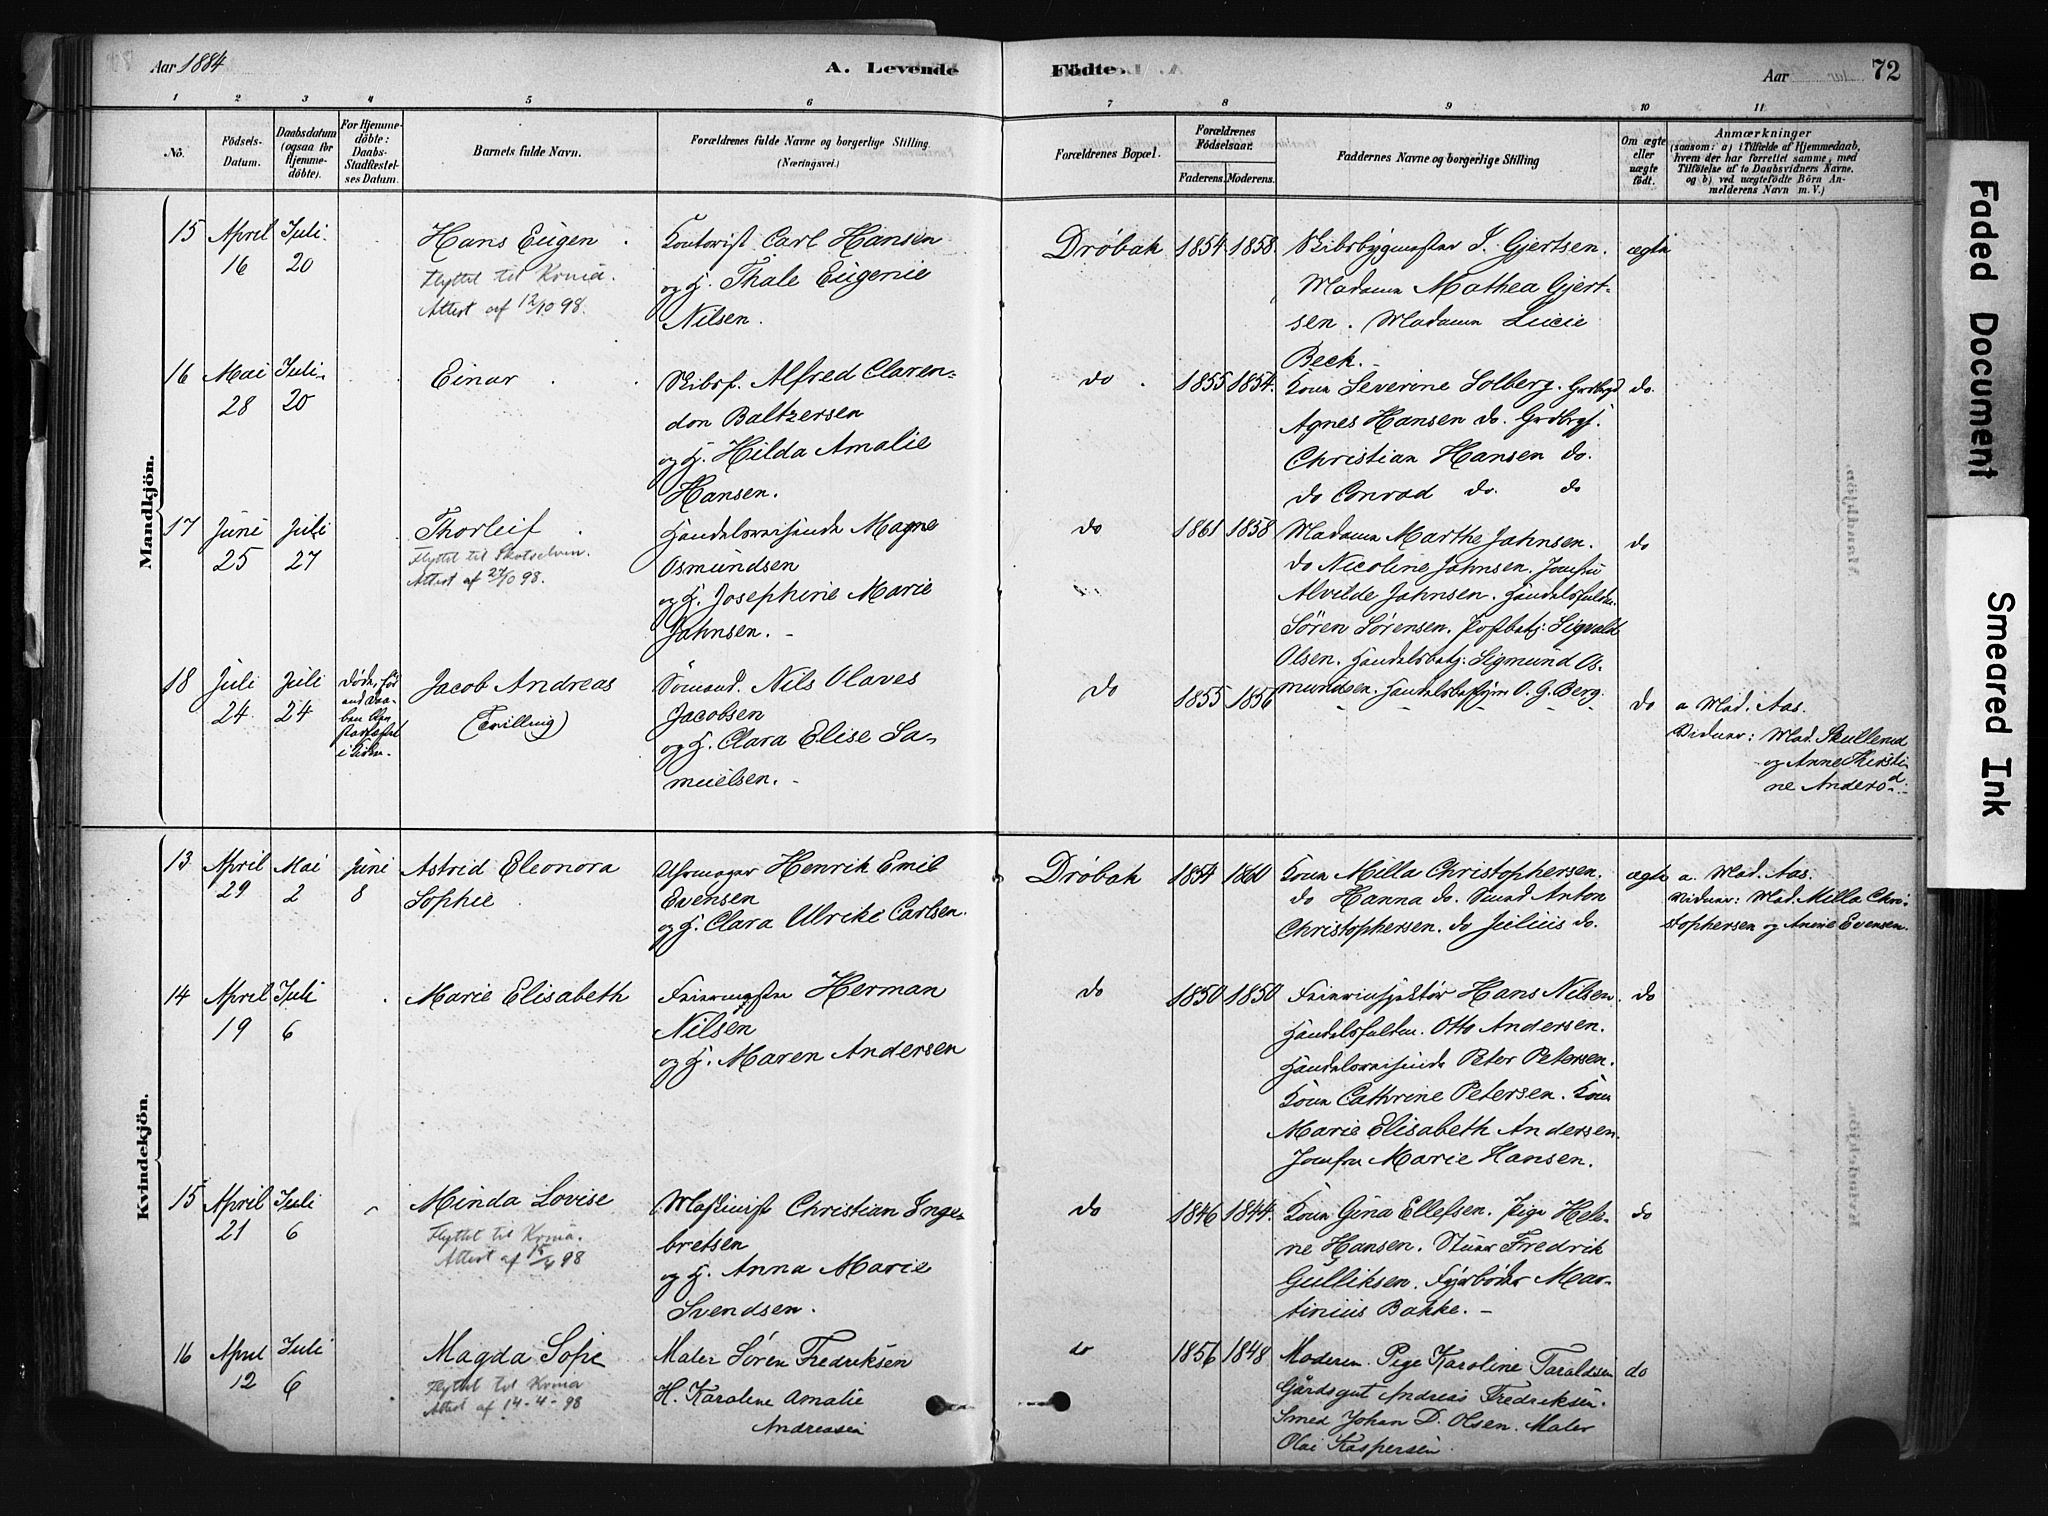 Aar 1884
A. Levende
Födte.
Aar
72
1
2
3
4
5
6
7
8
9
10
11
Nö.
Födsels-
Datum.
Daabsdatum
(ogsaa for
Hjemme-
döbte).
For Hjemme-
döbte:
Daabs-
Stadfæstel-
ses Datum.
Barnets fulde Navn.
Forældrenes fulde Navne og borgerlige Stilling
(Næringsvei.)
Forældrenes Bopæl.
Forældrenes
Födselsaar.
Faderens.
Moderens.
Faddernes Navne og borgerlige Stilling
Om ægte
eller
uægte
født.
Anmærkninger
(saasom: a) i Tilfælde af Hjemmedaab,
hvem der har forrettet samme, med
Tilföielse af to Daabsvidners Navne.
og b) ved uægtefödte Börn An-
melderens Navn m. V.)
Mandkjön.
15
April
16
Juli
20
Hans Eugen
Flyttet til Krnia.
Attest af 12/10 98.
Kontorist Carl Hansen
og H. Thale Eugenie
Nilsen.
Dröbak
1854
1858
Skibsbygmester J. Gjertsen.
Madame Mathea Gjert-
sen. Madame Lucie
Beck.
ægte
16
Mai
28
Juli
20
Einar
Skibsf. Alfred Claren-
don Baltzersen
og H. Hilda Amalie
Hansen.
do
1855
1854
Kone Severine Solberg.
Agnes Hansen do.
Christian Hansen do.
do Conrad do. do
do.
17
Juni
25
Juli
27
Thorleif
Flyttet til Skotselven.
Attest af 27/10 98.
Handelsreisende Magne
Osmundsen
og H. Josephine Marie
Jahnsen.
do
1861
1858
Madame Marthe Jahnsen.
do Nicoline Jahnsen. Jomfru
Alvilde Jahnsen.
Sören Sörensen. Postbetj: Sigvald
Olsen. Handelsbetj: Sigmund Os-
mundsen. O. G. Berg.
do
18
Juli
24
Juli
24
Jacob Andreas
(Tvilling)
Sömand. Nils Olaves
Jacobsen
og H. Clara Elise Sa-
muelsen.
do
1855
1856
do
a Mad. Aas.
Vidner: Mad. Skullerud
og Anne Kirsti-
ne Andersd.
Kvindekjön.
13
April
29
Mai
2
Juni
8
Astrid Eleonora
Sophie
Uhrmager Henrik Emil
Evensen
og H. Clara Ulrike Carlsen.
Dröbak
1854
1860
Kone Milla Christophersen.
do Hanna do. Smed Anton
Christophersen. do Julius do.
ægte
a. Mad. Aas.
Vidner: Mad. Milla Chri-
stophersen og Anine Evensen.
14
April
19
Juli
6
Marie Elisabeth
Feiermester Herman
Nilsen
og H. Maren Andersen
do
1850
1850
Feierinspektör Hans Nilsen.
Otto Andersen.
Handelsreisende Peter Petersen.
Kone Cathrine Petersen. Kone
Marie Elisabeth Andersen.
Jomfru Marie Hansen.
do
15
April
21
Juli
6
Minda Lovise
Flyttet til Krnia.
Attest af 15/4 98
Maskinist Christian Inge-
bretsen
og H. Anna Marie
Svendsen.
do
1846
1844.
Kone Gina Ellefsen. Pige Hele-
ne Hansen. Fredrik
Gulliksen. Fyrböder Mar-
tinius Bakke.
do
16
April
12
Juli
6
Magda Sofie
Flyttet til Krnia
Attest af 14-4-98
Maler Sören Fredriksen
H. Karoline Amalie
Andreasen
do
1856
1848
Moderen. Pige Karoline Taraldsen
Gårdsgut Andreas Fredriksen.
Smed Johan D. Olsen. Maler
Olai Kaspersen.
do
Faded Document
Smeared Ink